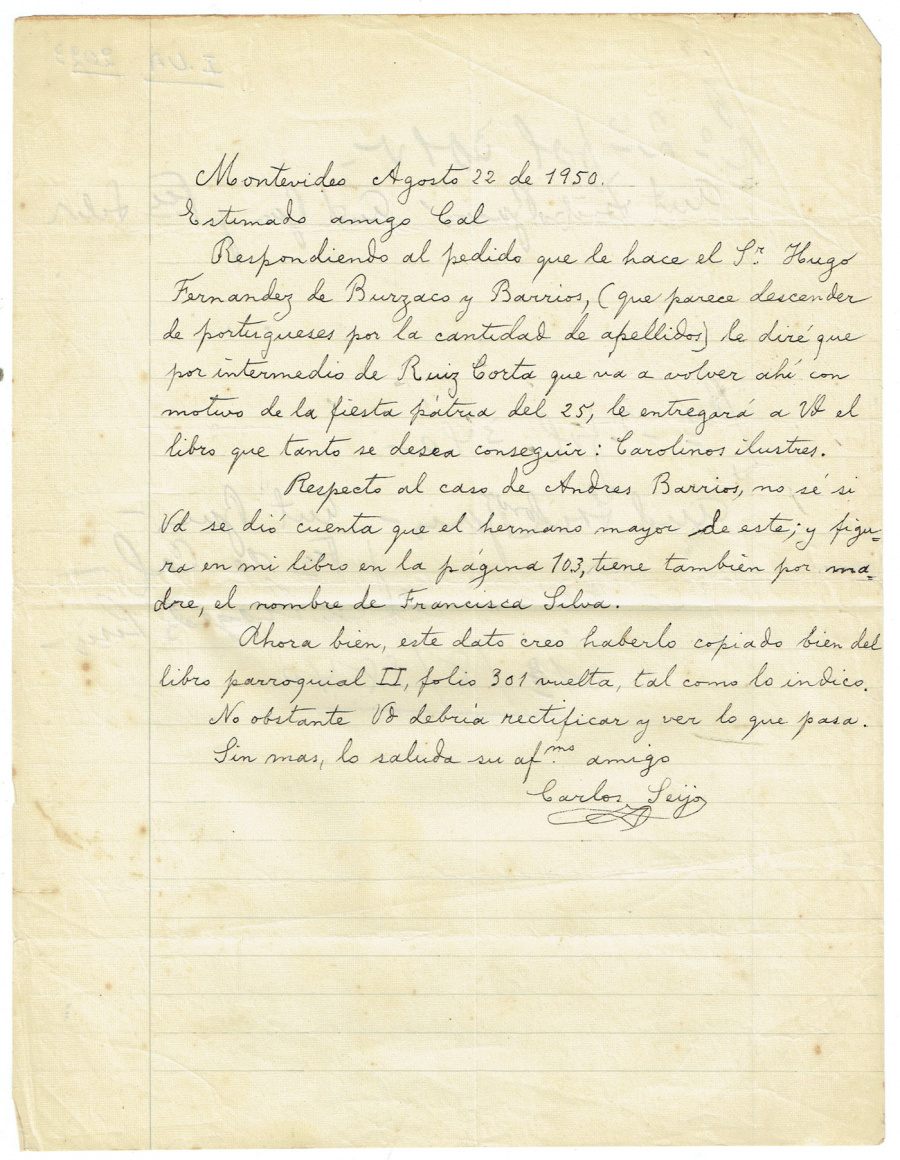 Montevideo Agosto 22 de 1950.
Estimado amigo Cal
Respondiendo al pedido que le hace el Sr. Hugo
Fernandez de Burzaco y Barrios, (que parece descender
de portugueses por la cantidad de apellidos) le diré que
por intermedio de Ruiz Corta que va a volver ahí con
motivo de la fiesta pátria del 25, le entregará a Vd el
libro que tanto se desea conseguir: Carolinos ilustres.
Respecto al caso de Andres Barrios, no sé si
Vd se dió cuenta que el hermano mayor de este; y figu-
ra en mi libro en la página 103, tiene también por ma-
dre, el nombre de Francisca Silva.
Ahora bien, este dato creo haberlo copiado bien del
libro parroquial II, folio 301 vuelta, tal como lo indico.
No obstante Vd debría rectificar y ver lo que pasa.
Sin mas, lo saluda su af.mo amigo
Carlos Seijo